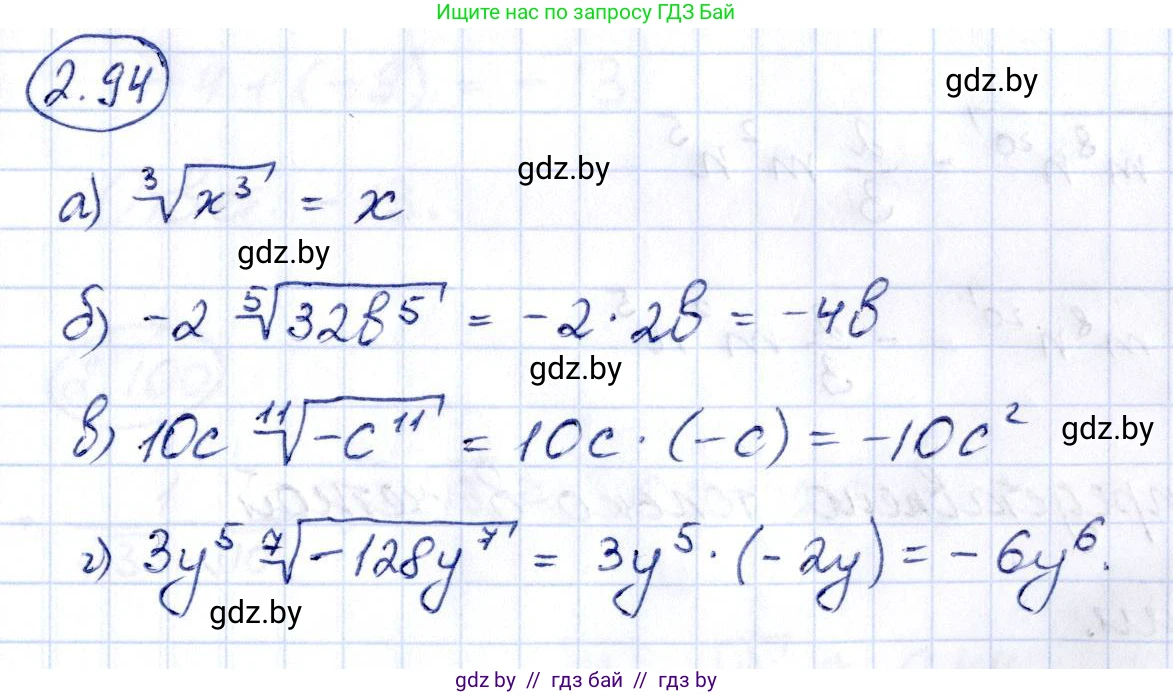 Ищите нас по запросу ГДЗ Бай
2.94
gdz.by
gdz.by
а) ∛(x³) = x
gdz.by
б) -2 ⁵√(32b⁵) = -2 · 2b = -4b
gdz.by
в) 10c ¹¹√(-c¹¹) = 10c · (-c) = -10c²
gdz.by
г) 3y⁵ ⁷√(-128y⁷) = 3y⁵ · (-2y) = -6y⁶.
gdz.by
gdz.by // гдз бай // гдз by